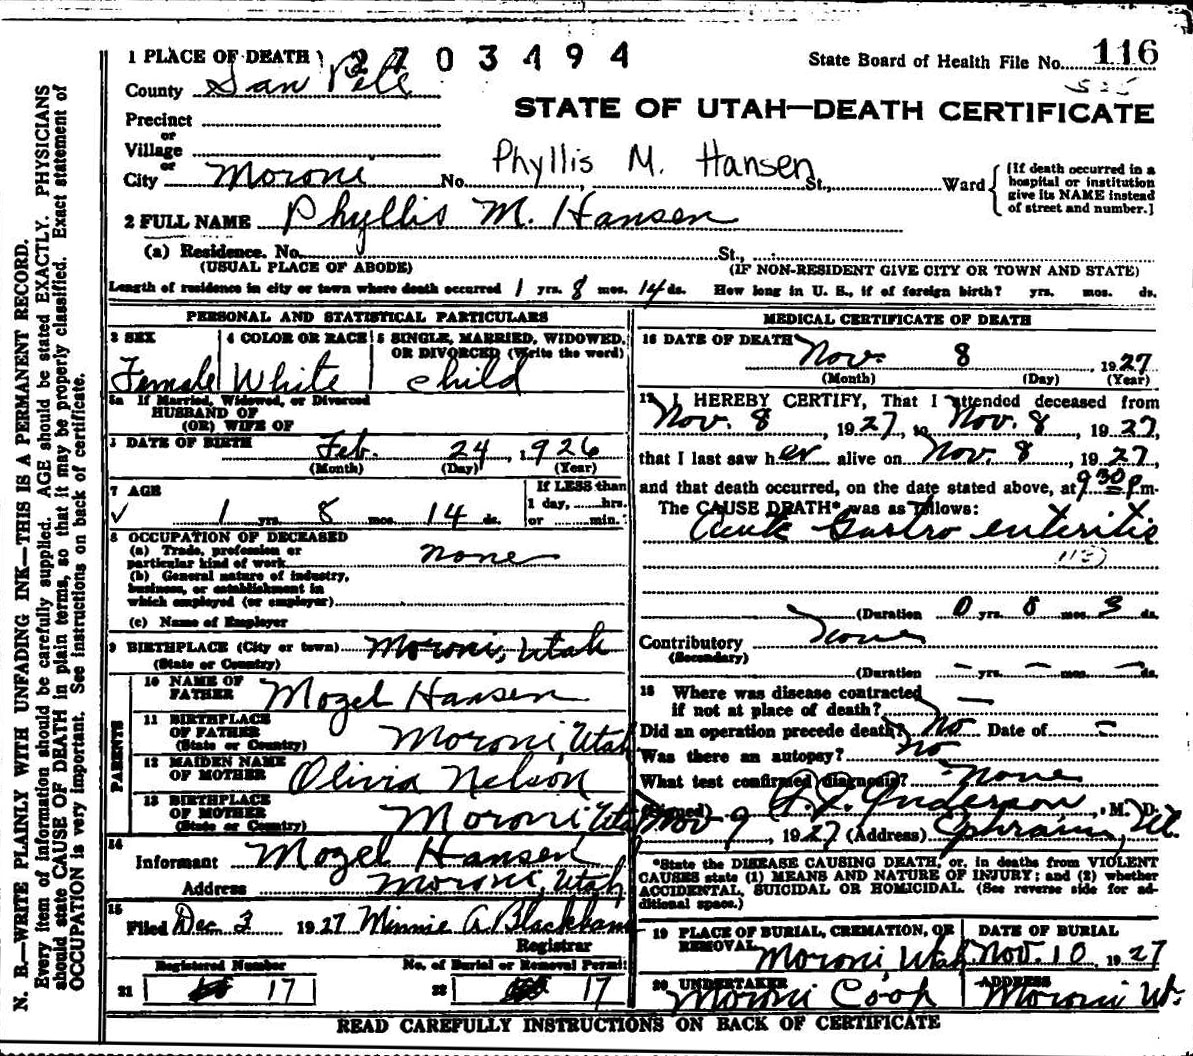 1 PLACE OF DEATH 2703494
State Board of Health File No. 116
County San Pete
STATE OF UTAH—DEATH CERTIFICATE
Precinct
or
Village
or
City Moroni No. St., Ward
Phyllis M. Hansen
[If death occurred in a hospital or institution give its NAME instead of street and number.]
2 FULL NAME Phyllis M. Hansen
(a) Residence. No. St.,
(USUAL PLACE OF ABODE) (IF NON-RESIDENT GIVE CITY OR TOWN AND STATE)
Length of residence in city or town where death occurred 1 yrs. 8 mos. 14 ds. How long in U. S., if of foreign birth? yrs. mos. ds.
PERSONAL AND STATISTICAL PARTICULARS
3 SEX
Female
4 COLOR OR RACE
White
5 SINGLE, MARRIED, WIDOWED, OR DIVORCED (Write the word)
child
5a If Married, Widowed, or Divorced
HUSBAND OF
(OR) WIFE OF
DATE OF BIRTH Feb. 24, 1926
(Month) (Day) (Year)
7 AGE
1 yrs. 8 mos. 14 ds.
If LESS than
1 day, hrs.
or min.
8 OCCUPATION OF DECEASED
(a) Trade, profession or
particular kind of work none
(b) General nature of industry,
business, or establishment in
which employed (or employer)
(c) Name of Employer
9 BIRTHPLACE (City or town) Moroni, Utah
(State or Country)
PARENTS
10 NAME OF
FATHER Mozel Hansen
11 BIRTHPLACE
OF FATHER
(State or Country) Moroni, Utah
12 MAIDEN NAME
OF MOTHER Olivia Nelson
13 BIRTHPLACE
OF MOTHER
(State or Country) Moroni Utah
14
Informant Mozel Hansen
Address Moroni, Utah
15
Filed Dec 3 1927 Minnie A. Blackham
Registrar
Registered Number No. of Burial or Removal Permit
21 17 22 17
MEDICAL CERTIFICATE OF DEATH
16 DATE OF DEATH
Nov. 8, 1927
(Month) (Day) (Year)
17 I HEREBY CERTIFY, That I attended deceased from
Nov. 8, 1927, to Nov. 8, 1927,
that I last saw her alive on Nov. 8, 1927,
and that death occurred, on the date stated above, at 9 30 P.m.
The CAUSE DEATH* was as follows:
Acute Gastro enteritis
(Duration 0 yrs. 0 mos. 3 ds.
Contributory None
(Secondary)
(Duration – yrs. – mos. – ds.
18 Where was disease contracted
if not at place of death? —
Did an operation precede death? No Date of –
Was there an autopsy? No
What test confirmed diagnosis? None
(Signed) Anderson, M. D.
Nov 9, 1927 (Address) Ephraim, Ut.
*State the DISEASE CAUSING DEATH, or, in deaths from VIOLENT
CAUSES state (1) MEANS AND NATURE OF INJURY; and (2) whether
ACCIDENTAL, SUICIDAL OR HOMICIDAL. (See reverse side for ad-
ditional space.)
19 PLACE OF BURIAL, CREMATION, OR
REMOVAL
Moroni, Utah.
DATE OF BURIAL
Nov. 10 1927
20 UNDERTAKER
Moroni Coop
ADDRESS
Moroni Ut.
READ CAREFULLY INSTRUCTIONS ON BACK OF CERTIFICATE
N. B.—WRITE PLAINLY WITH UNFADING INK—THIS IS A PERMANENT RECORD.
Every item of information should be carefully supplied. AGE should be stated EXACTLY. PHYSICIANS
should state CAUSE OF DEATH in plain terms, so that it may be properly classified. Exact statement of
OCCUPATION is very important. See instructions on back of certificate.